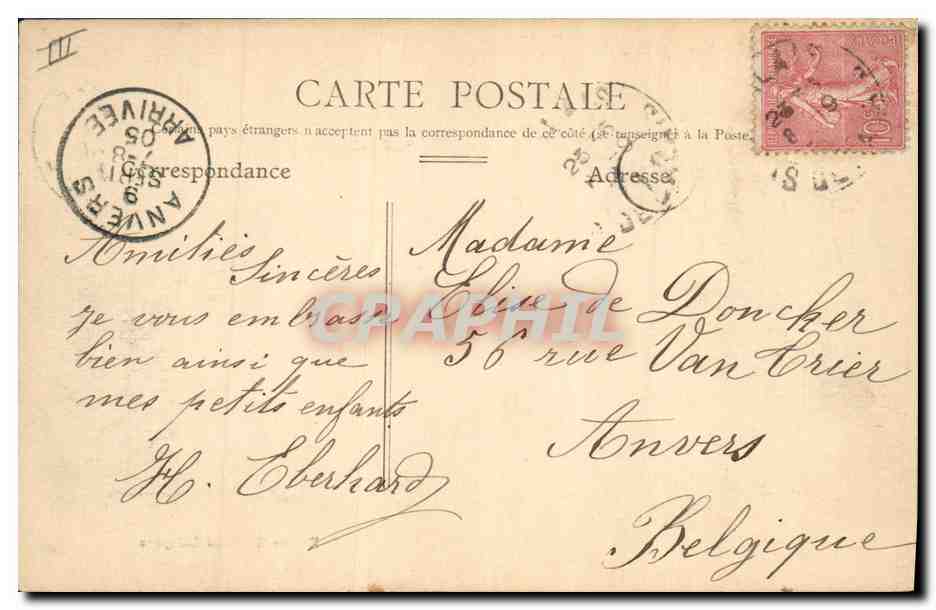 III
CARTE POSTALE
Certains pays étrangers n'acceptent pas la correspondance de ce côté (se renseigner à la Poste
Correspondance
Adresse
ANVERS
9
SEPT
7-8
05
ARRIVÉE
10c
Amitiés
Sincères
je vous embrasse
bien ainsi que
mes petits enfants
H. Eberhard
Madame
Elise de Doncker
56 rue Van Trier
Anvers
Belgique
CPAPHIL